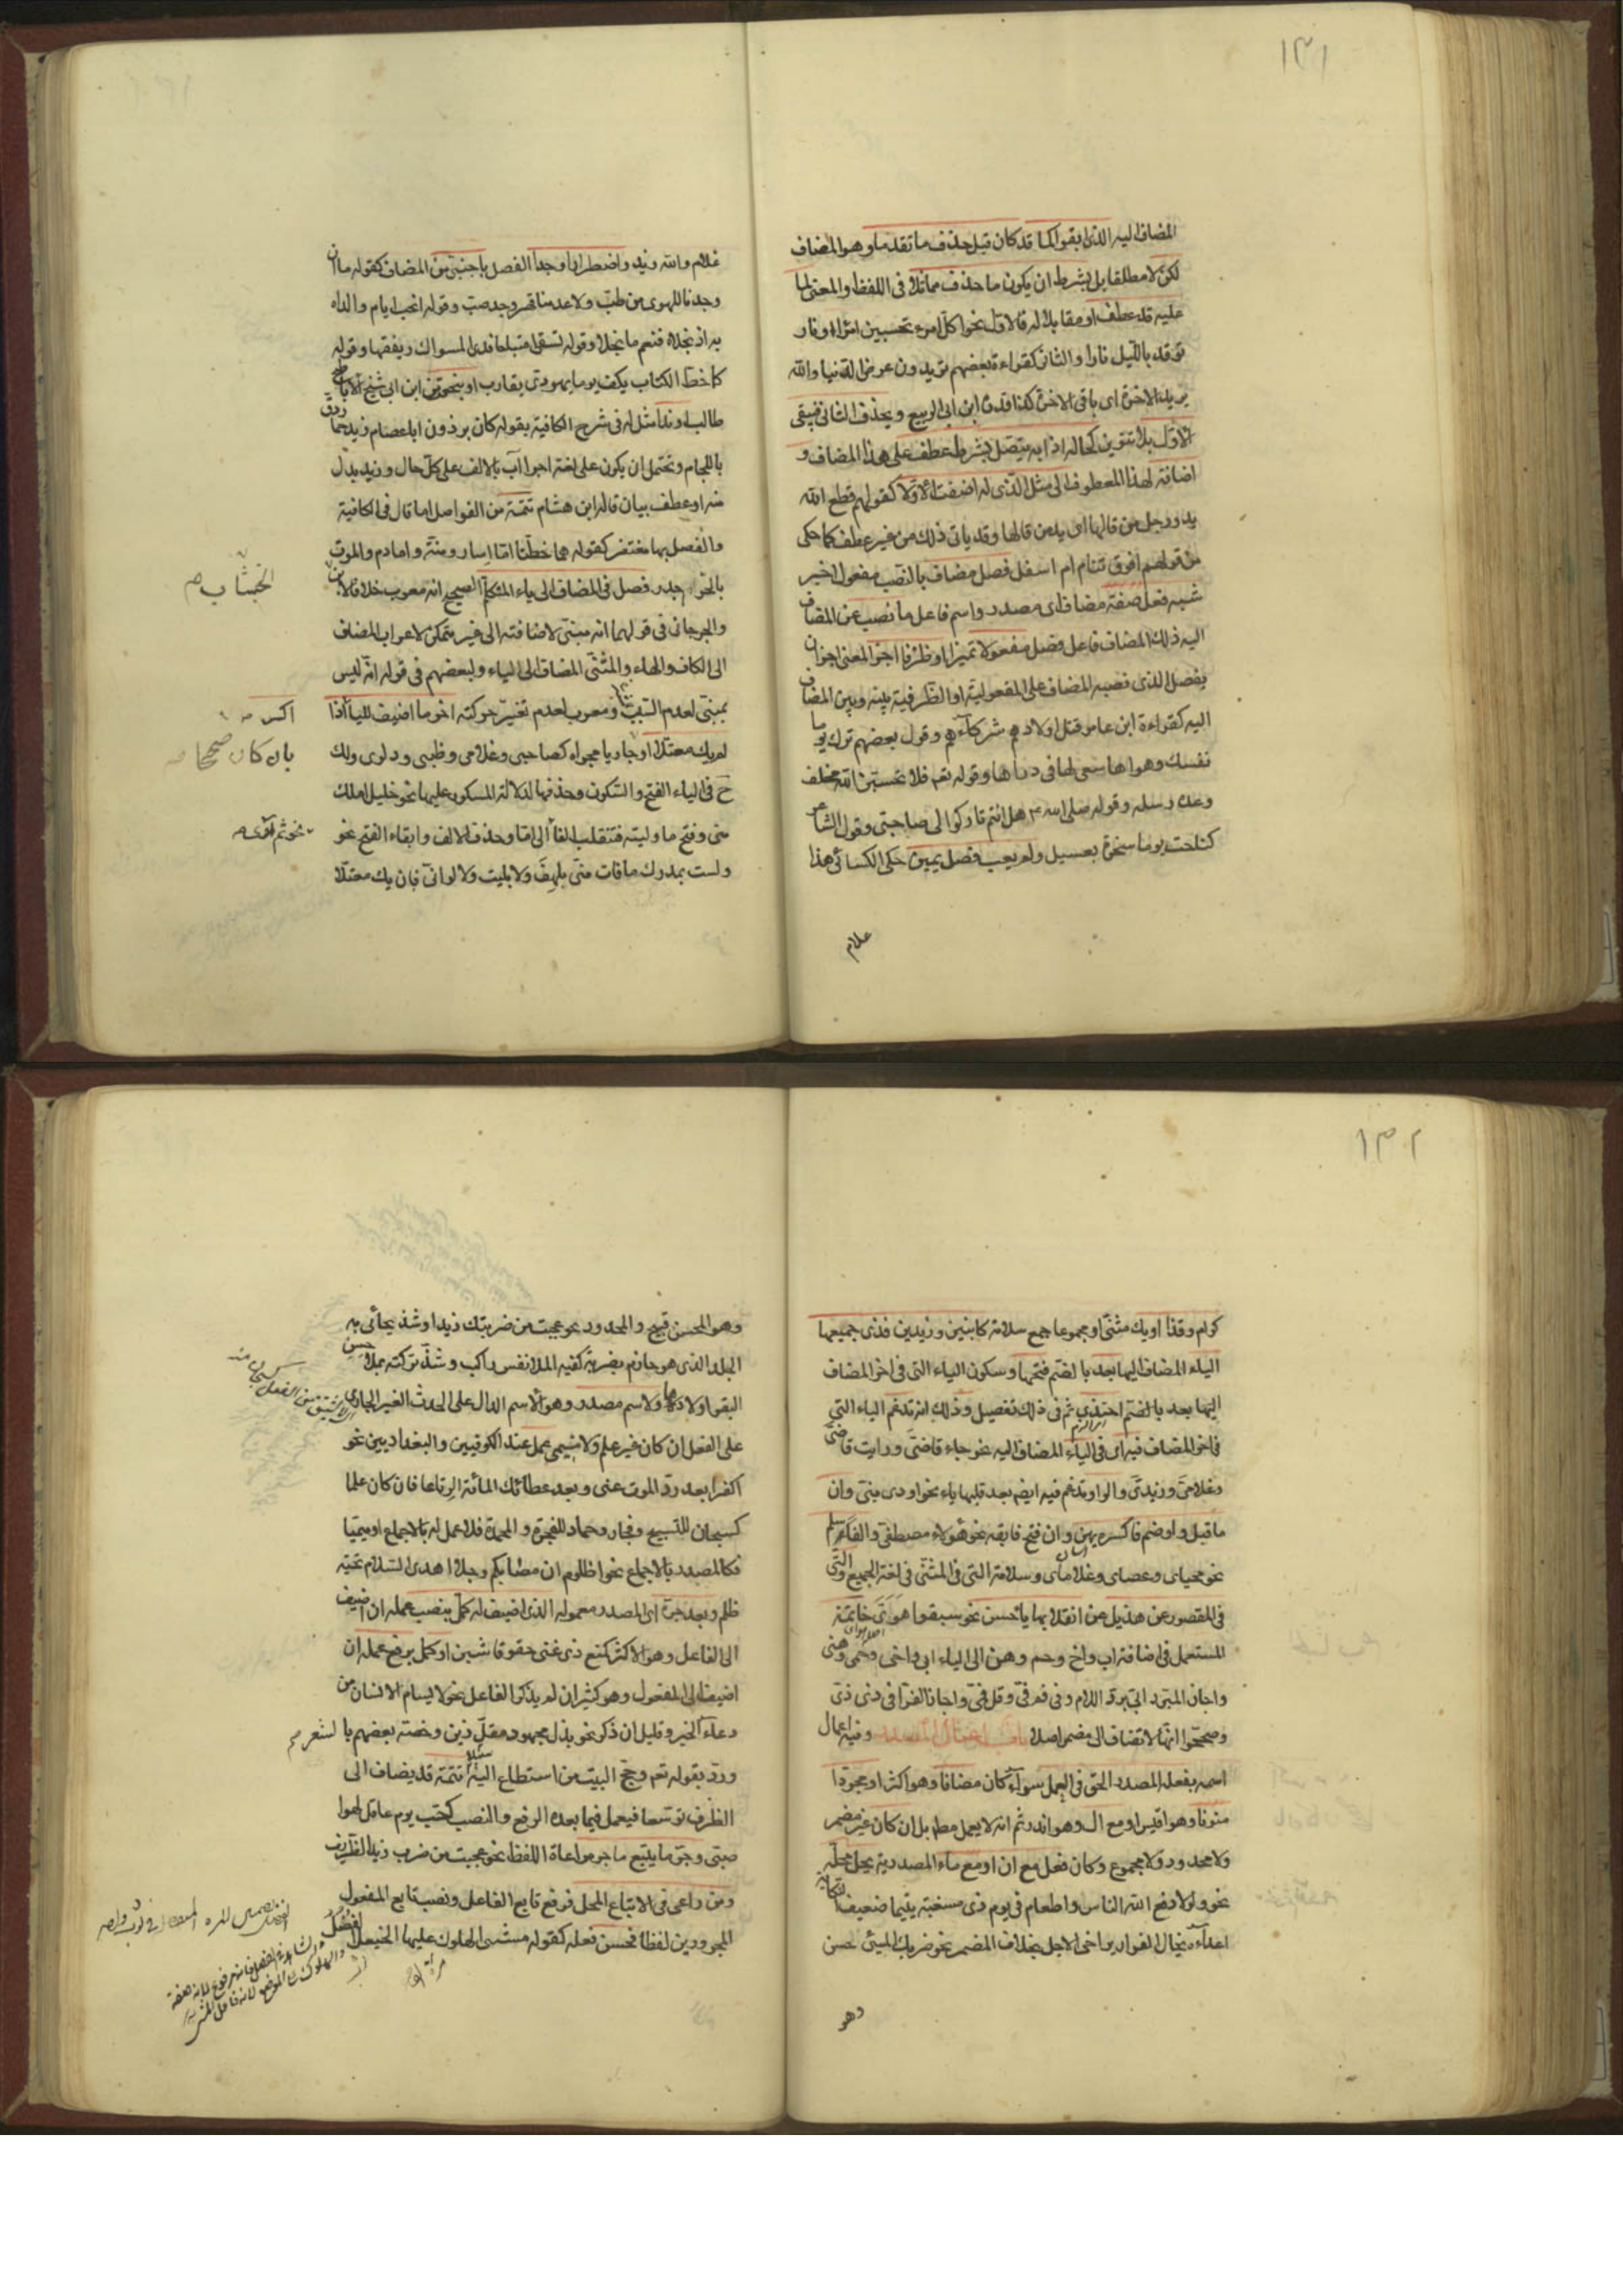 ١٣١
المضاف اليه الذى ابقوا كما قد كان قبل حذف ما تقدما وهو المضاف
لكن لا مطلقا بل بشرط ان يكون ما حذف مماثلا فى اللفظ والمعنى لما
عليه قد عطف او مقابلا له فالاول نحو اكل امرء تحسبين امراء ونار
توقد بالليل نارا والثانى كقراءة بعضهم تريدون عرض الدنيا والله
يريد الاخرة اى باقى الاخرة كذا قدره ابن ابى الربيع ويحذف الثانى فيبقى
الاول بلا تنوين كحاله اذا به يتصل بشرط عطف على هذا المضاف و
اضافة لهذا المعطوف الى مثل الذى له اضفت الاولا كقولهم قطع الله
يد ورجل من قالها اى يد من قالها وقد ياتى ذلك من غير عطف كما حكى
من قولهم افوق تنام ام اسفل فصل مضاف بالنصب مفعول اخير
شبه فعل صفة مضاف اى مصدر واسم فاعل ما نصب عن المضاف
اليه ذلك المضاف فاعل فصل مفعولا تميزا او ظرفا اجز المعنى اجز ان
يفصل الذى نصبه المضاف على المفعولية او الظرفية بينه وبين المضاف
اليه كقراءة ابن عامر قتل اولادهم شركآئهم وقول بعضهم ترك يوما
نفسك وهواها سعى لها فى رداها وقوله تعم فلا تحسبن الله مخلف
وعده رسله وقوله صلى الله م هل انتم تاركوا لى صاحبى وقول الشاعر
كناحت يوما صخرة بعسيل ولم يعب فصل يمين حكى الكسائى هذا
غلام
غلام والله زيد واضطرارا وجدا الفصل باجنبى من المضاف كقوله ما ان
وجدنا للهوى من طب ولا عدمنا قهر وجد صب وقوله انجب ايام والداه
به اذ نجلاه فنعم ما نجلا وقوله تسقى امتياحا ندى المسواك ريقتها وقوله
كما خط الكتاب بكف يوما يهودى يقارب او بنعت نحو من ابن ابى شيخ الاباطح
طالب او ندا مثل له فى شرح الكافية بقوله كان برذون ابا عصام زيد حمار دق
باللجام وتحتمل ان يكون على لغة اجراء اب بالالف على كل حال وزيد بدل
منه او عطف بيان قاله ابن هشام تتمة من الفواصل اما قال فى الكافية
والفصل بها مغتفر كقوله هما خطتا اما اسار ومنة واما دم والموت
بالحر اجدر فصل فى المضاف الى ياء المتكلم الصحيح انه معرب خلافا لابن
الخشاب صح
والجرجانى فى قولهما انه مبنى لاضافته الى غير متمكن لاعراب المضاف
الى الكاف والهاء والمثنى المضاف الى الياء ولبعضهم فى قوله انه ليس
بمبنى لعدم السبب ومعرب لعدم تغير حركته اخر ما اضيف لليا اذا
اكسر صح
لم يك معتلا او جاريا مجراه كصاحبى وغلامى وظبى ودلوى ولك
بان كان صحيحا صح
ح فى الياء الفتح والسكون وحذفها لدلالة المسكور عليها نحو خليل املك
منى وفتح ما وليته فتنقلب الفا الى اما وحذف الالف وابقاء الفتح نحو
نحو ثم آوى صح
ولست بمدرك ما فات منى بلهف ولا بليت ولا لو انى فان يك معتلا
١٣٢
كرام وقذا او يك مثنى او مجموعا جمع سلامة كابنين وزيدين فذى جميعها
الياء المضاف اليها بعد بالضم فتحها وسكون الياء التى فى اخر المضاف
اليها بعد بالضم احتذى ثم فى ذلك تفصيل وذلك انه تدغم الياء التى
فى اخر المضاف فيه اى فى الياء المضاف اليه نحو جاء قاضى ورايت قاضى
وغلامى وزيدى والواو تدغم فيه ايضم بعد قلبها ياء نحو اودى بنى وان
ما قبل واو ضم فاكسره يهن وان فتح فابقه نحو هؤلاء مصطفى والفا سلم
نحو محياى وعصاى وغلاماى وسلامة التى فى المثنى فى لغة الجميع والتى
فى المقصور عن هذيل عن انقلابها ياء حسن نحو سبقوا هوى خاتمة
المستعمل فى اضافة اب واخ وحم وهن الى الياء ابى واخى وحمى وهنى
واجاز المبرد ابى برد اللام وفى فم فى وقل فمى واجاز الفرا فى ذى ذى
وصححوا انها لا تضاف الى مضمر اصلا باب اعمال المصدر وفيه اعمال
اسمه بفعله المصدر الحق فى العمل سوآء كان مضافا وهو اكثر او مجردا
منونا وهو اقيس او مع ال وهو اندر ثم انه لا يعمل مطم بل ان كان غير مضمر
ولا محدود ولا مجموع وكان فعل مع ان او مع ماء المصدرية يحل محله
نحو ولولا دفع الله الناس او اطعام فى يوم ذى مسغبة يتيما ضعيف النكاية
اعداءه يخال الفرار يراخى الاجل بخلاف المضمر نحو ضربك المسئ حسن
وهو
وهو المحسن قبيح والمحدود نحو عجبت من ضربتك زيدا وشذ يحائى به
الجلد الذى هو حازم بضربة كفيه الملا نفس راكب وشذ تركته بملاحس
البقر اولادها ولا اسم مصدر وهو الاسم الدال على الحدث الغير الجارى
على الفعل ان كان غير علم ولا ميمى عمل عند الكوفيين والبغداديين نحو
اكفرا بعد رد الموت عنى وبعد عطائك المائة الرتاعا فان كان علما
كسبحان للتسبيح وفجار وحماد للفجرة والمحمدة فلا عمل له بالاجماع او ميميا
فكالمصدر بالاجماع نحو اظلوم ان مصابكم رجلا اهدى السلام تحية
ظلم وبعد جره اى المصدر معموله الذى اضيف له كمل بنصب عمله ان اضيف
الى الفاعل وهو الاكثر كمنع ذى غنى حقوقا شين او كمل برفع عمله ان
اضيف الى المفعول وهو كثير ان لم يذكر الفاعل نحو لا يسام الانسان من
دعآء الخير وقليل ان ذكر نحو بذل مجهود مقل زين وخصه بعضهم بالشعر
ورد بقوله تعم وحج البيت من استطاع اليه سبيلا تتمة قد يضاف الى
الظرف توسعا فيعمل فيما بعده الرفع والنصب كحب يوم عاقل لهوا
صبى وجر ما يتبع ما جر مراعاة اللفظ نحو عجبت من ضرب زيد الظريف
ومن راعى فى الاتباع المحل فرفع تابع الفاعل ونصب تابع المفعول
المجرورين لفظا فحسن فعله كقوله مشى الهلوك عليها الخيعل الفضل